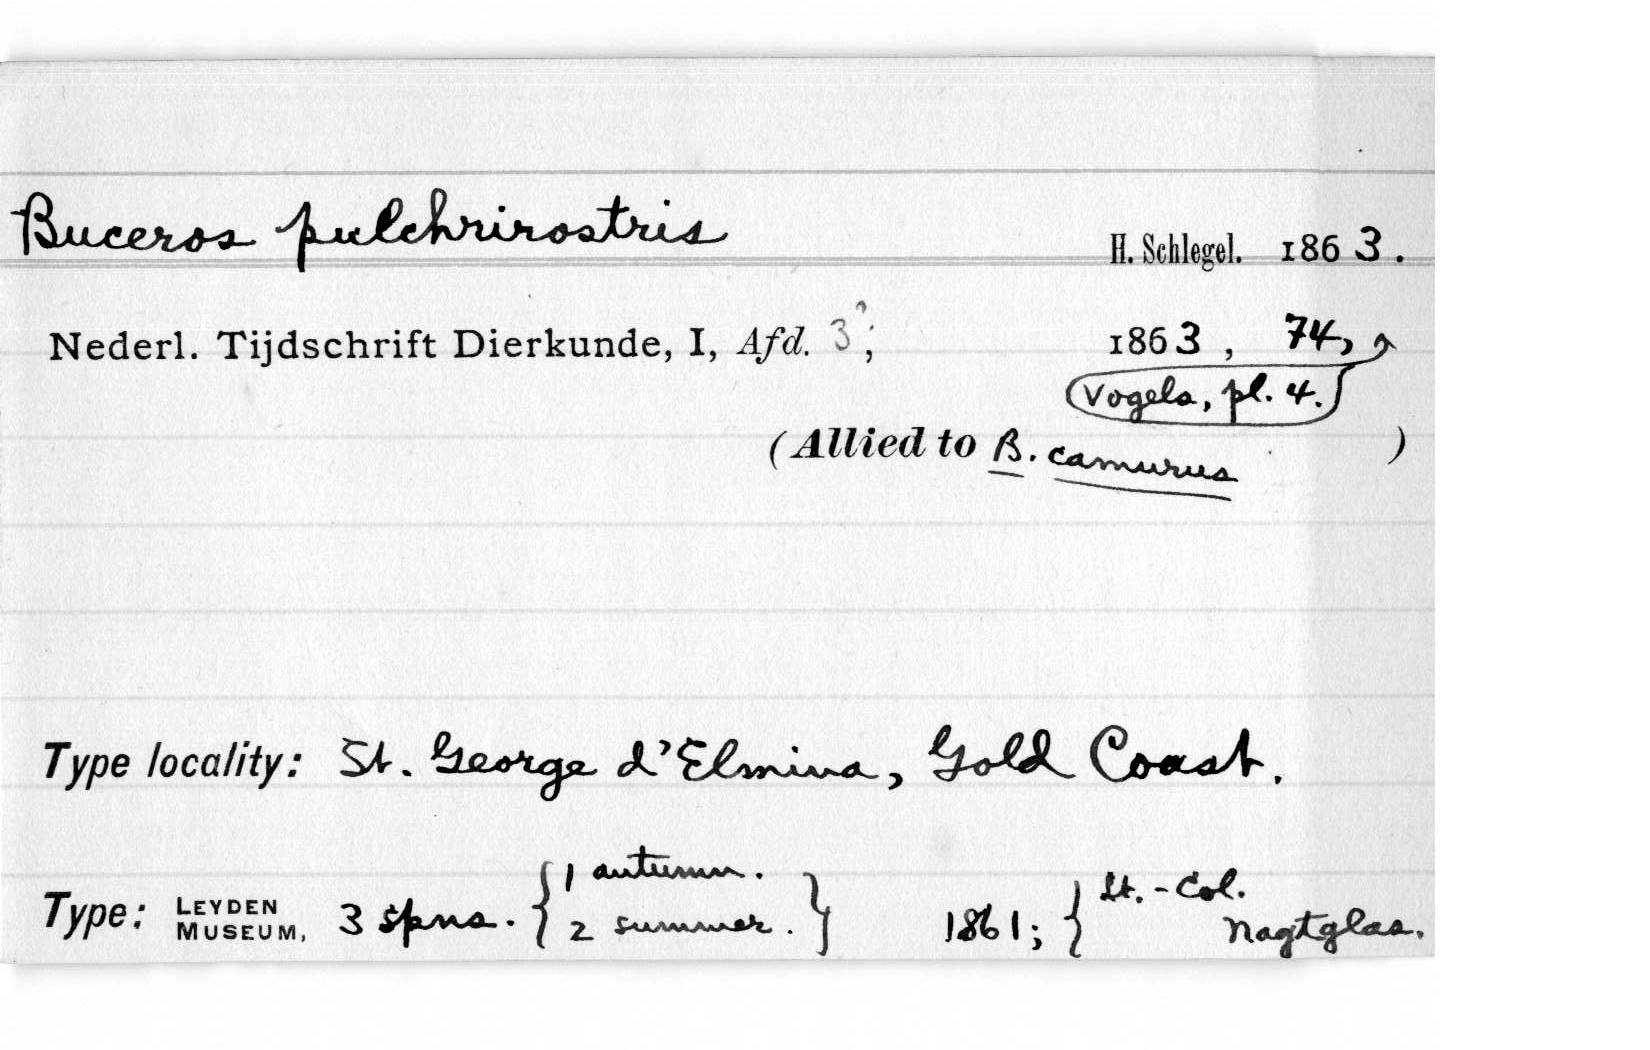 Buceros pulchrirostris H. Schlegel. 1863.
Nederl. Tijdschrift Dierkunde, I, Afd. 3?; 1863, 74,
Vogels, pl. 4.
(Allied to B. camurus )
Type locality: St. George d'Elmina, Gold Coast.
Type: LEYDEN MUSEUM, 3 spns. { 1 autumn. 2 summer. } 1861; { Lt.-Col. Nagtglas.